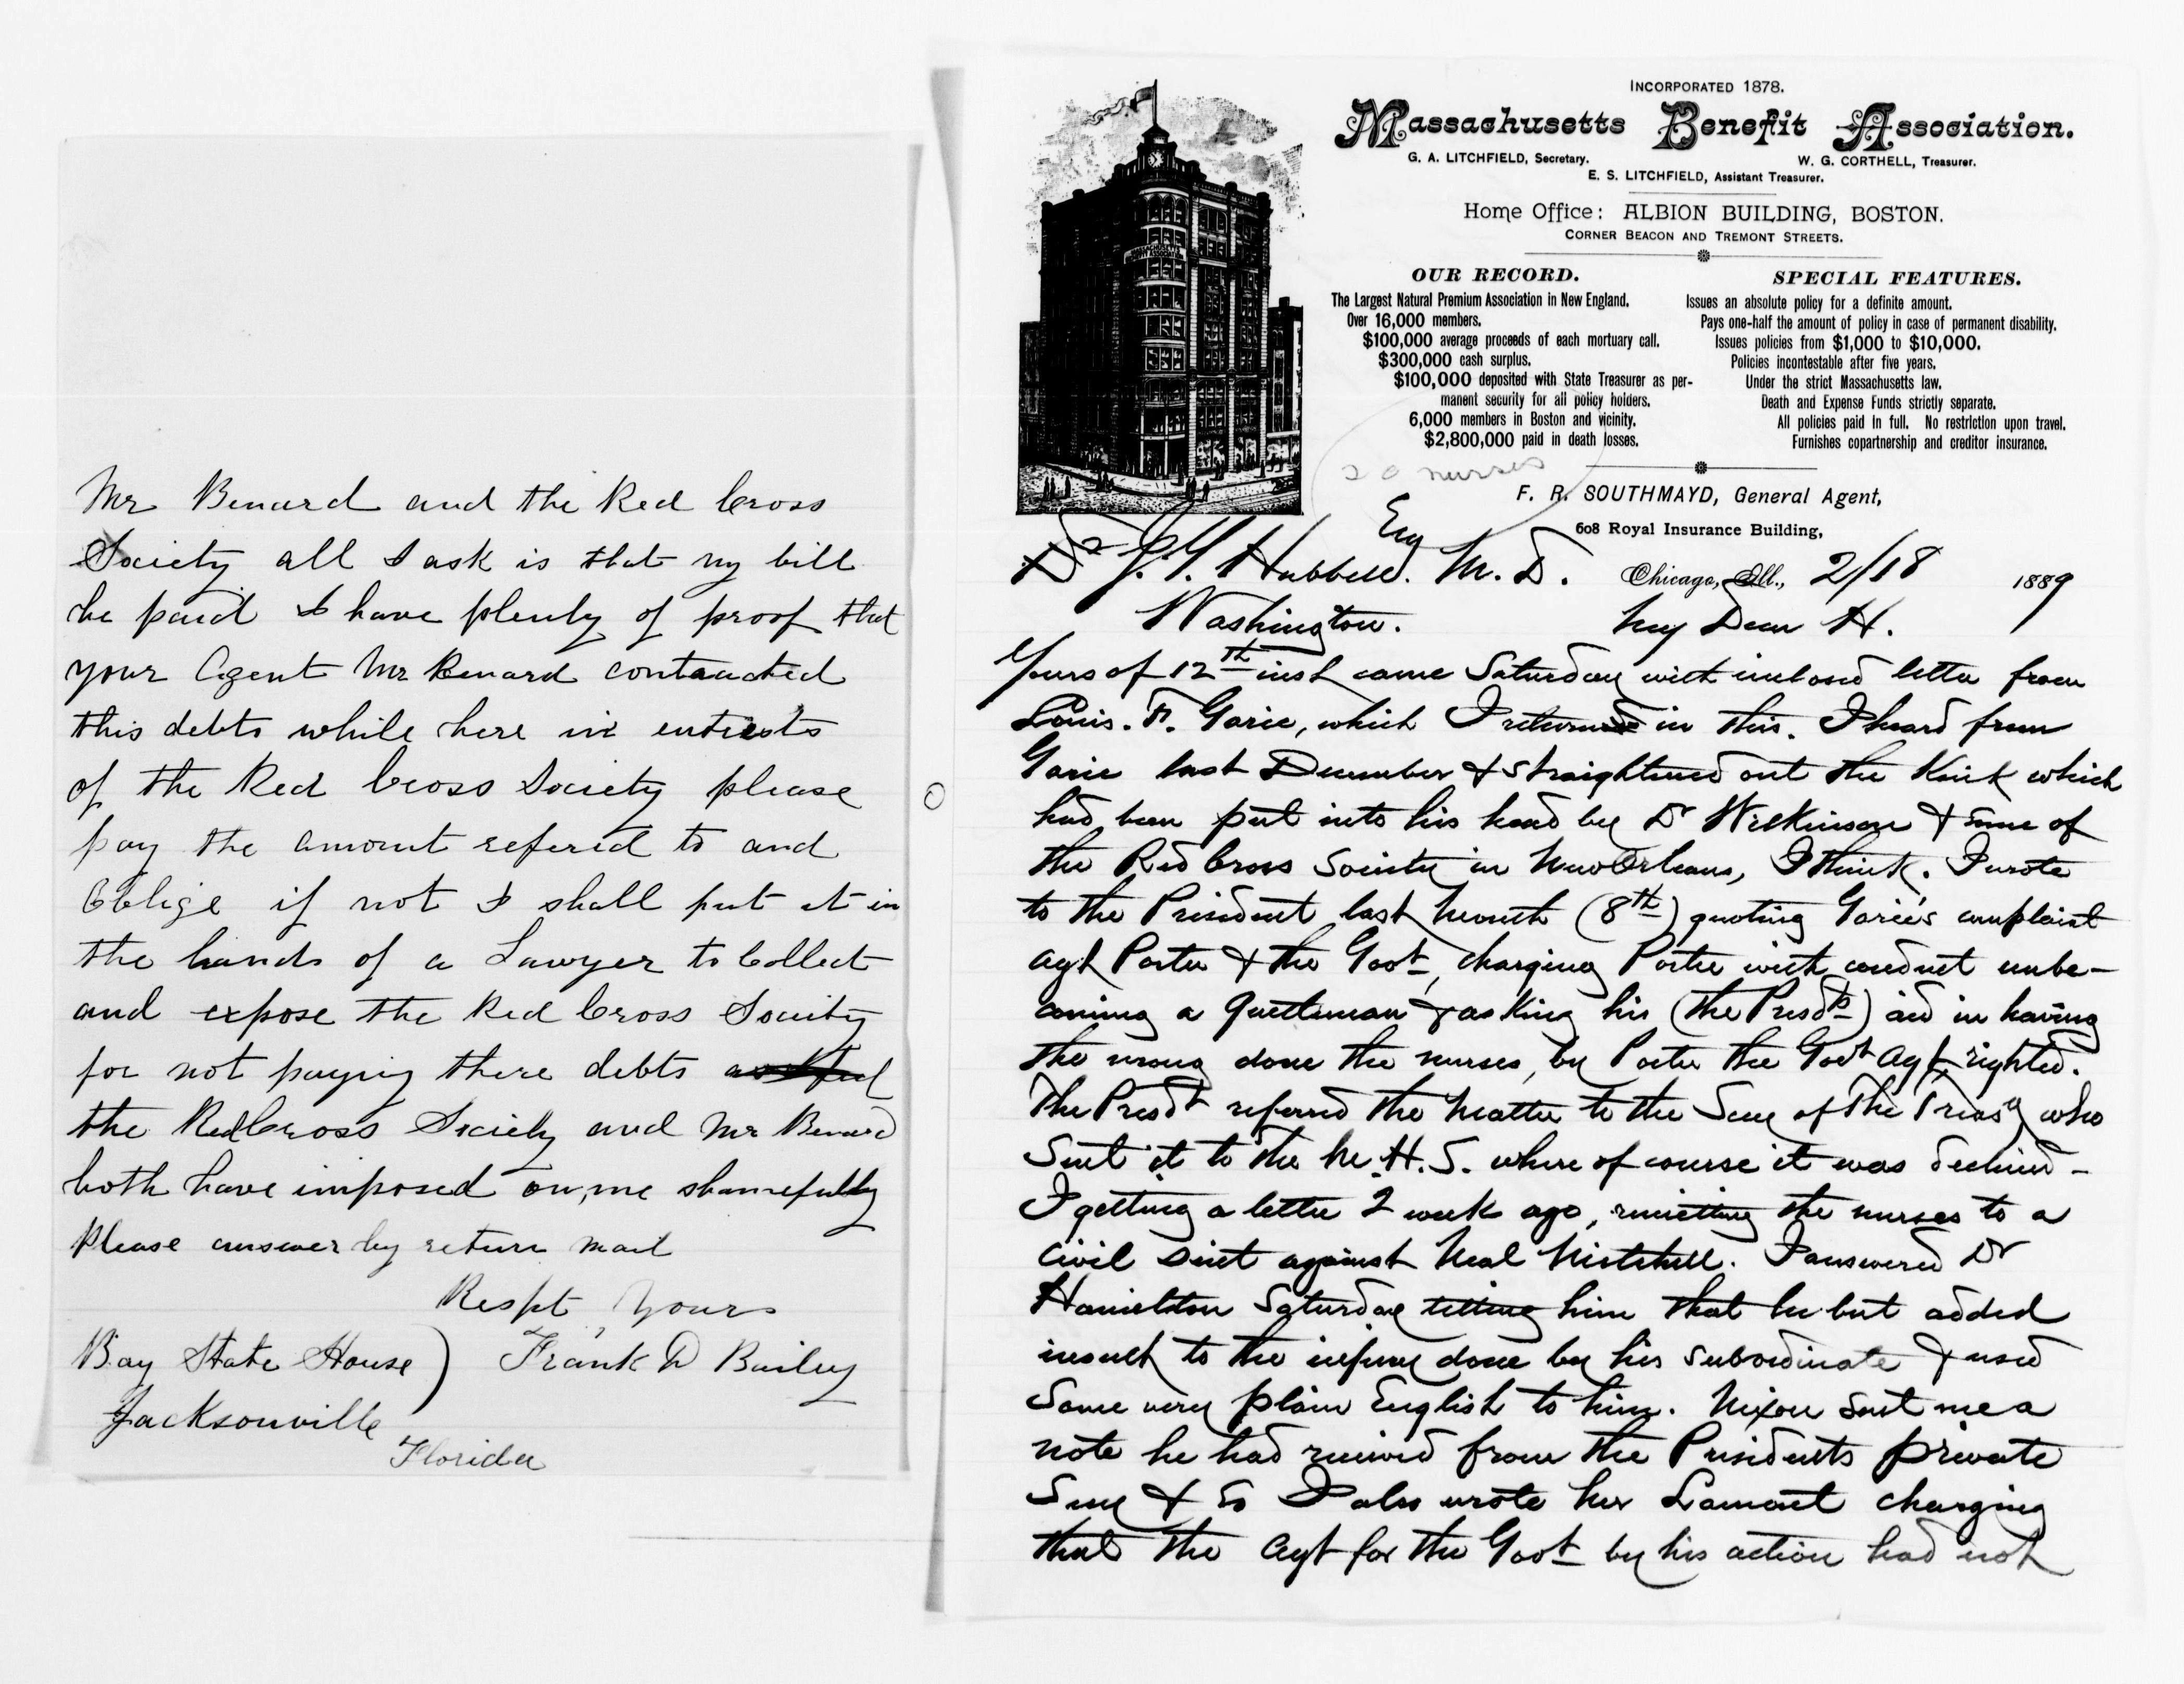 Mr Benard and the Red Cross
Society all I ask is that my bill
be paid I have plenty of proof that
your Agent Mr Benard contaucted
this debts while here in entriests
of the Red Cross Society please
pay the amount refered to and
Oblige if not I shall put it in
the hands of a Lawyer to Collect
and expose the Red Cross Society
for not paying there debts
the Red Cross Society and Mr Benard
both have imposed on, me shamefully
Please answer by return mail
Respt, Yours
Bay State House ) Frank D Bailey
Jacksonville
Florida
INCORPORATED 1878.
Massachusetts Benefit Association.
G. A. LITCHFIELD, Secretary. W. G. CORTHELL, Treasurer.
E. S. LITCHFIELD, Assistant Treasurer.
Home Office: ALBION BUILDING, BOSTON.
CORNER BEACON AND TREMONT STREETS.
OUR RECORD.
The Largest Natural Premium Association in New England.
Over 16,000 members.
$100,000 average proceeds of each mortuary call.
$300,000 cash surplus.
$100,000 deposited with State Treasurer as per-
manent security for all policy holders.
6,000 members in Boston and vicinity.
$2,800,000 paid in death losses.
SPECIAL FEATURES.
Issues an absolute policy for a definite amount.
Pays one-half the amount of policy in case of permanent disability.
Issues policies from $1,000 to $10,000.
Policies incontestable after five years.
Under the strict Massachusetts law.
Death and Expense Funds strictly separate.
All policies paid in full. No restriction upon travel.
Furnishes copartnership and creditor insurance.
20 nurses
F. R. SOUTHMAYD, General Agent,
608 Royal Insurance Building,
Dr J. Y. Hubbell. M. D. Chicago, Ill., 2/18 1889
Washington. My Dear H.
Yours of 12th inst came Saturday with inclosed letter from
Louis. F. Garic, which I return in this. I heard from
Garic last December & straightened out the Kink which
had been put into his head by Dr Wilkinson & some of
the Red Cross Society in New Orleans, I think. I wrote
to the President last month (8th) quoting Garic's complaint
agt Porter & the Govt, charging Porter with conduct unbe-
coming a gentleman & asking his (the Presdts) aid in having
the wrong done the nurses, by Porter the Govt Agt, righted.
The Presdt referred the matter to the Secy of the Treasy who
sent it to the M. H. S. where of course it was declined -
I getting a letter 2 week ago, remitting the nurses to a
civil suit against Neal Mitchell. I answered Dr
Hamilton Saturday telling him that he but added
insult to the injury done by his subordinate & used
some very plain English to him. Nixon sent me a
note he had received from the Presidents private
Secy & so I also wrote her Lamont charging
that the Agt for the Govt by his action had not